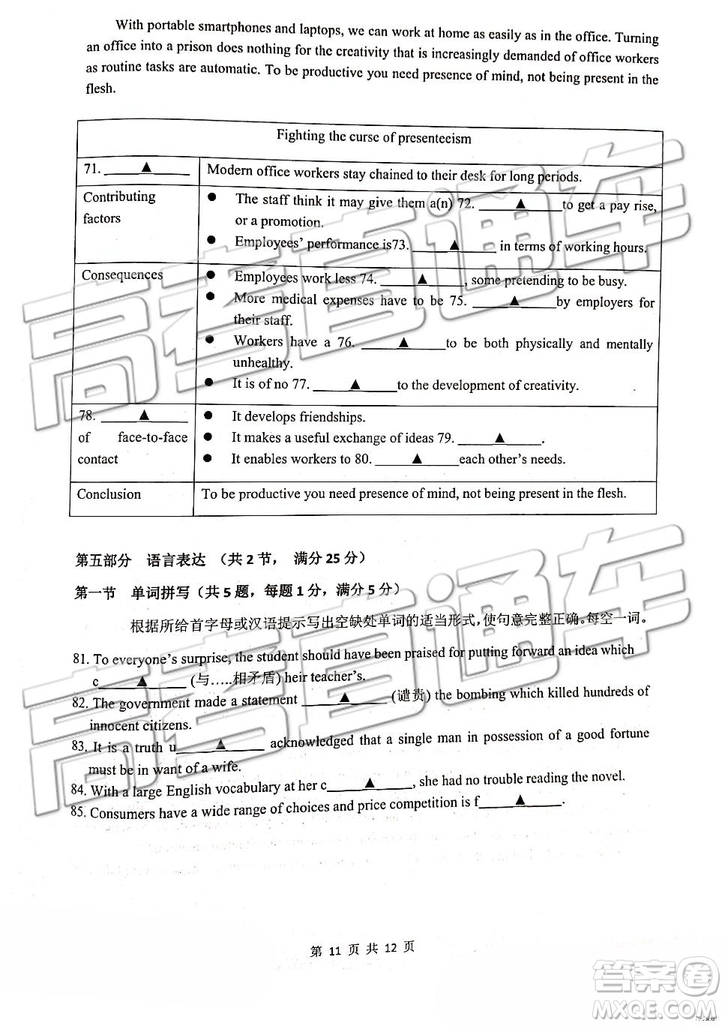 With portable smartphones and laptops, we can work at home as easily as in the office. Turning
an office into a prison does nothing for the creativity that is increasingly demanded of office workers
as routine tasks are automatic. To be productive you need presence of mind, not being present in the
flesh.
Fighting the curse of presenteeism
71. ▲ Modern office workers stay chained to their desk for long periods.
Contributing
factors
● The staff think it may give them a(n) 72. ▲ to get a pay rise,
or a promotion.
● Employees' performance is73. ▲ in terms of working hours.
Consequences
● Employees work less 74. ▲ , some pretending to be busy.
● More medical expenses have to be 75. ▲ by employers for
their staff.
● Workers have a 76. ▲ to be both physically and mentally
unhealthy.
● It is of no 77. ▲ to the development of creativity.
78. ▲
of face-to-face
contact
● It develops friendships.
● It makes a useful exchange of ideas 79. ▲ .
● It enables workers to 80. ▲ each other's needs.
Conclusion To be productive you need presence of mind, not being present in the flesh.
第五部分 语言表达 (共 2 节, 满分 25 分)
第一节 单词拼写(共 5 题, 每题 1 分, 满分 5 分)
根据所给首字母或汉语提示写出空缺处单词的适当形式, 使句意完整正确。每空一词。
81. To everyone's surprise, the student should have been praised for putting forward an idea which
c ▲ (与…..相矛盾) heir teacher's.
82. The government made a statement ▲ (谴责) the bombing which killed hundreds of
innocent citizens.
83. It is a truth u ▲ acknowledged that a single man in possession of a good fortune
must be in want of a wife.
84. With a large English vocabulary at her c ▲ , she had no trouble reading the novel.
85. Consumers have a wide range of choices and price competition is f ▲ .
第 11 页 共 12 页
高考直通车
高考直通车
答案圈
MXQE.COM